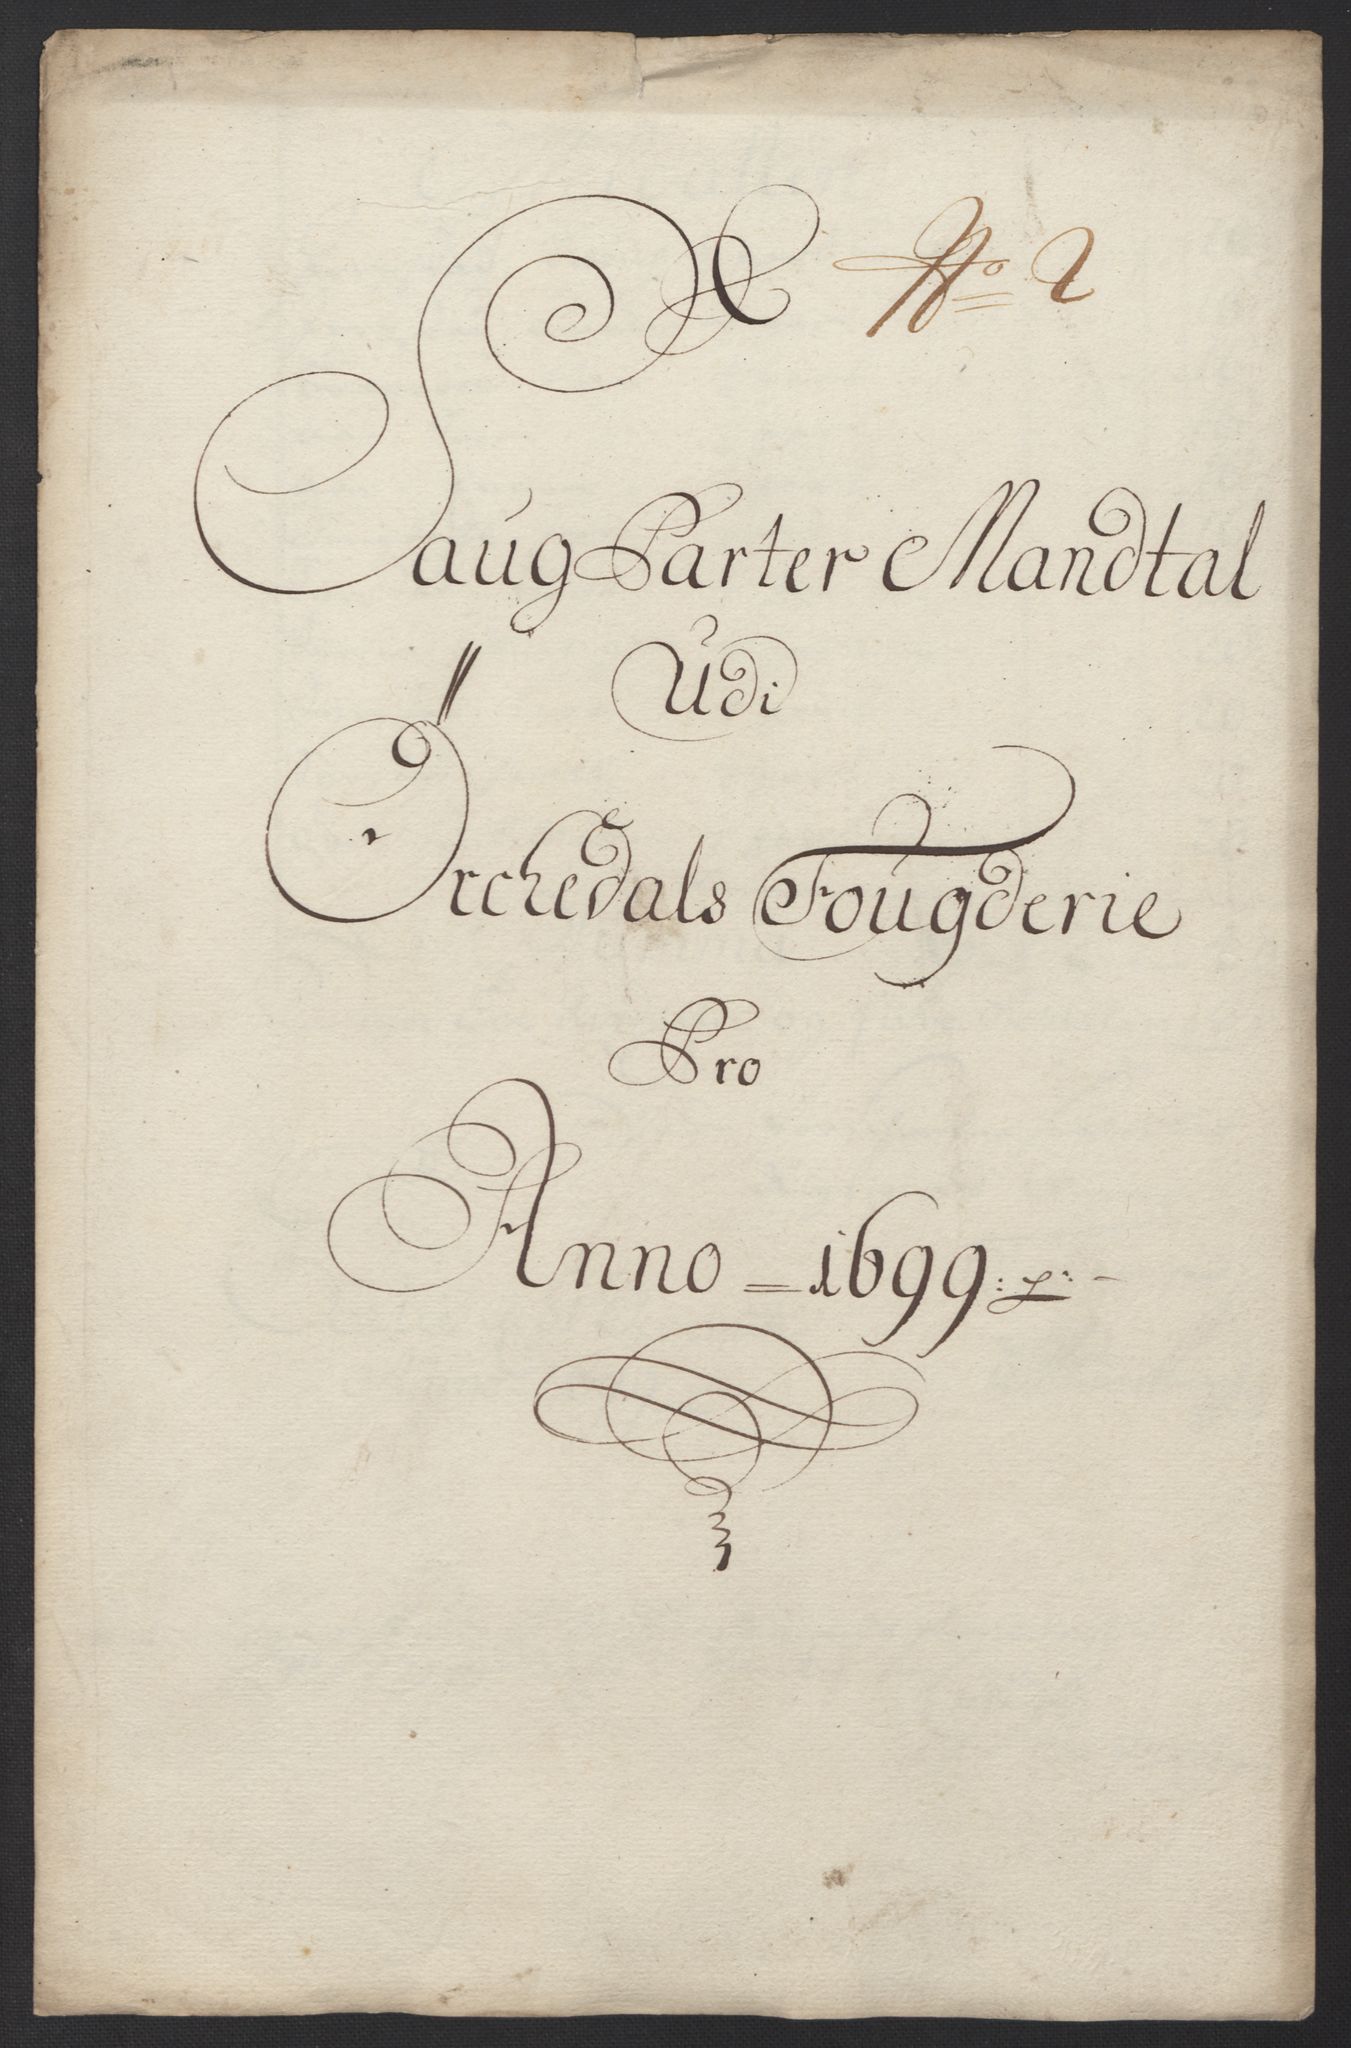 No 2
Saug Parter Mandtal
Udi
Örchedals Fougderie
Pro
Anno = 1699